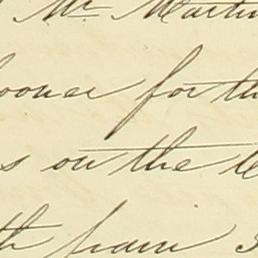 Mr Martin
sooner for th
s on the
th from